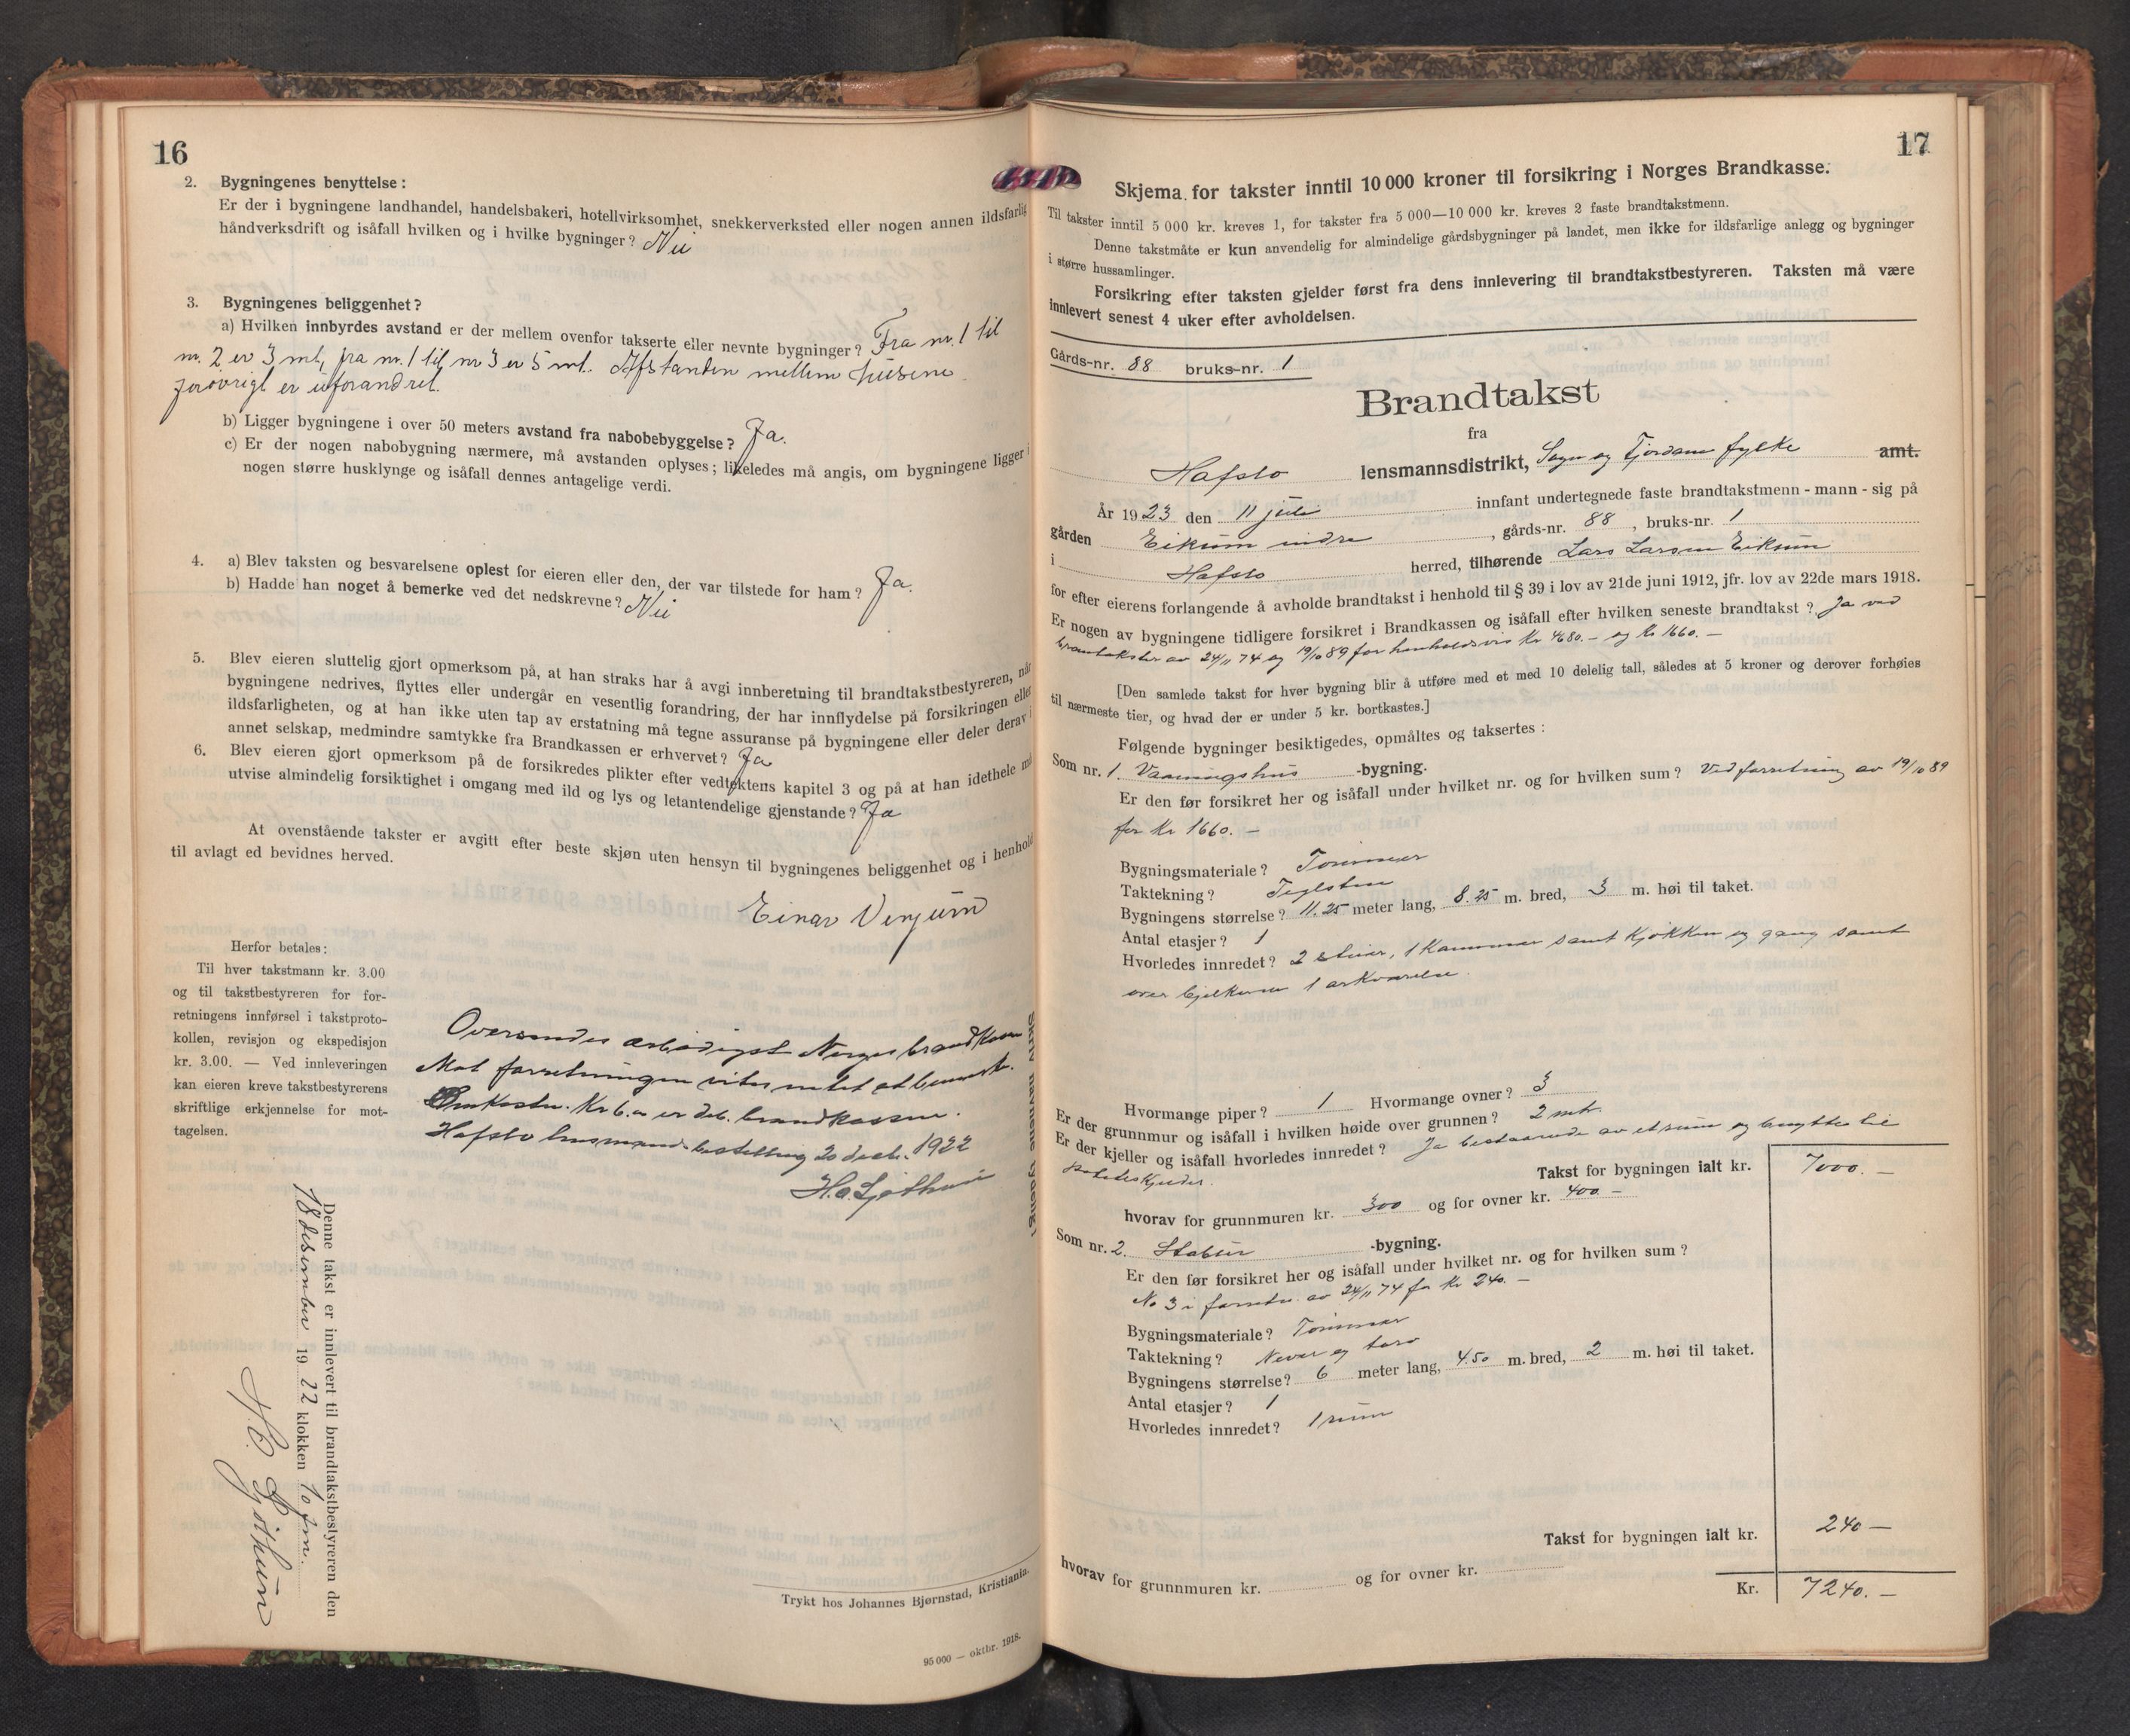 16
2. Bygningenes benyttelse:
Er der i bygningene landhandel, handelsbakeri, hotellvirksomhet, snekkerverksted eller nogen annen ildsfarlig
håndverksdrift og isåfall hvilken og i hvilke bygninger? Nei
3. Bygningenes beliggenhet?
a) Hvilken innbyrdes avstand er der mellem ovenfor takserte eller nevnte bygninger? Fra nr. 1 til
nr. 2 er 3 mt, fra nr. 1 til nr 3 er 5 mt. Afstanden mellem husene
forøvrigt er uforandret.
b) Ligger bygningene i over 50 meters avstand fra nabobebyggelse? Ja.
c) Er der nogen nabobygning nærmere, må avstanden oplyses; likeledes må angis, om bygningene ligger i
nogen større husklynge og isåfall dennes antagelige verdi.
4. a) Blev taksten og besvarelsene oplest for eieren eller den, der var tilstede for ham? Ja.
b) Hadde han noget å bemerke ved det nedskrevne? Nei
5. Blev eieren sluttelig gjort opmerksom på, at han straks har å avgi innberetning til brandtakstbestyreren, når
bygningene nedrives, flyttes eller undergår en vesentlig forandring, der har innflydelse på forsikringen eller
ildsfarligheten, og at han ikke uten tap av erstatning må tegne assuranse på bygningene eller deler derav i
annet selskap, medmindre samtykke fra Brandkassen er erhvervet? Ja
6. Blev eieren gjort opmerksom på de forsikredes plikter efter vedtektens kapitel 3 og på at han idethele må
utvise almindelig forsiktighet i omgang med ild og lys og letantendelige gjenstande? Ja
At ovenstående takster er avgitt efter beste skjøn uten hensyn til bygningenes beliggenhet og i henhold
til avlagt ed bevidnes herved.
Einar Venjum
Herfor betales:
Til hver takstmann kr. 3.00
og til takstbestyreren for for-
retningens innførsel i takstproto-
kollen, revisjon og ekspedisjon
kr. 3.00. — Ved innleveringen
kan eieren kreve takstbestyrerens
skriftlige erkjennelse for mot-
tagelsen.
Oversendes ærbødigst Norges brandkasse
Mot forretningen vites intet at bemerke.
Omkostn. Kr 6.00 er deb. brandkassen.
Hafslo lensmandsbestilling 20 decbr. 1922
H.O. Ljøthun
Denne takst er innlevert til brandtakstbestyreren den
18 desember 1922 klokken 10 fm.
H.O. Ljøthun
Trykt hos Johannes Bjørnstad, Kristiania.
95 000 — oktbr. 1918.
17
Skjema for takster inntil 10 000 kroner til forsikring i Norges Brandkasse.
Til takster inntil 5 000 kr. kreves 1, for takster fra 5 000—10 000 kr. kreves 2 faste brandtakstmenn.
Denne takstmåte er kun anvendelig for almindelige gårdsbygninger på landet, men ikke for ildsfarlige anlegg og bygninger
i større hussamlinger.
Forsikring efter taksten gjelder først fra dens innlevering til brandtakstbestyreren. Taksten må være
innlevert senest 4 uker efter avholdelsen.
Gårds-nr. 88 bruks-nr. 1
Brandtakst
fra
Hafslo lensmannsdistrikt, Sogn og Fjordane fylke amt.
År 1923 den 11 juli innfant undertegnede faste brandtakstmenn - mann - sig på
gården Eikum indre, gårds-nr. 88, bruks-nr. 1
i Hafslo herred, tilhørende Lars Larsen Eikum
for efter eierens forlangende å avholde brandtakst i henhold til § 39 i lov av 21de juni 1912, jfr. lov av 22de mars 1918.
Er nogen av bygningene tidligere forsikret i Brandkassen og isåfall efter hvilken seneste brandtakst? Ja ved
brandtakster av 24/11 74 og 19/10 89 for henholdsvis Kr 4680.- og Kr 1660.-
[Den samlede takst for hver bygning blir å utføre med et med 10 delelig tall, således at 5 kroner og derover forhøies
til nærmeste tier, og hvad der er under 5 kr. bortkastes.]
Følgende bygninger besiktigedes, opmåltes og taksertes:
Som nr. 1. Vaaningshus -bygning.
Er den før forsikret her og isåfall under hvilket nr. og for hvilken sum? Ved forretning av 19/10 89
for Kr 1660. -
Bygningsmateriale? Tømmer
Taktekning? Teglsten
Bygningens størrelse? 11.25 meter lang, 8.25 m. bred, 3 m. høi til taket.
Antal etasjer? 1
Hvorledes innredet? 2 stuer, 1 kammer samt kjøkken og gang samt
over bjelkerne 1 arkværelse.
Hvormange piper? 1 Hvormange ovner? 3
Er der grunnmur og isåfall i hvilken høide over grunnen? 2 mtr.
Er der kjeller og isåfall hvorledes innredet? Ja bestaaende av et rum og benyttes til
poteteskjelder.
Takst for bygningen ialt kr. 7000. -
hvorav for grunnmuren kr. 300 og for ovner kr. 400 -
Som nr. 2. Stabur -bygning.
Er den før forsikret her og isåfall under hvilket nr. og for hvilken sum?
No 3 i forretn. av 24/11 74 for Kr 240. -
Bygningsmateriale? Tømmer
Taktekning? Never og torv
Bygningens størrelse? 6 meter lang, 4.50 m. bred, 2 m. høi til taket.
Antal etasjer? 1
Hvorledes innredet? 1 rum
Takst for bygningen ialt kr. 240 -
hvorav for grunnmuren kr. og for ovner kr.
Kr. 7240. -